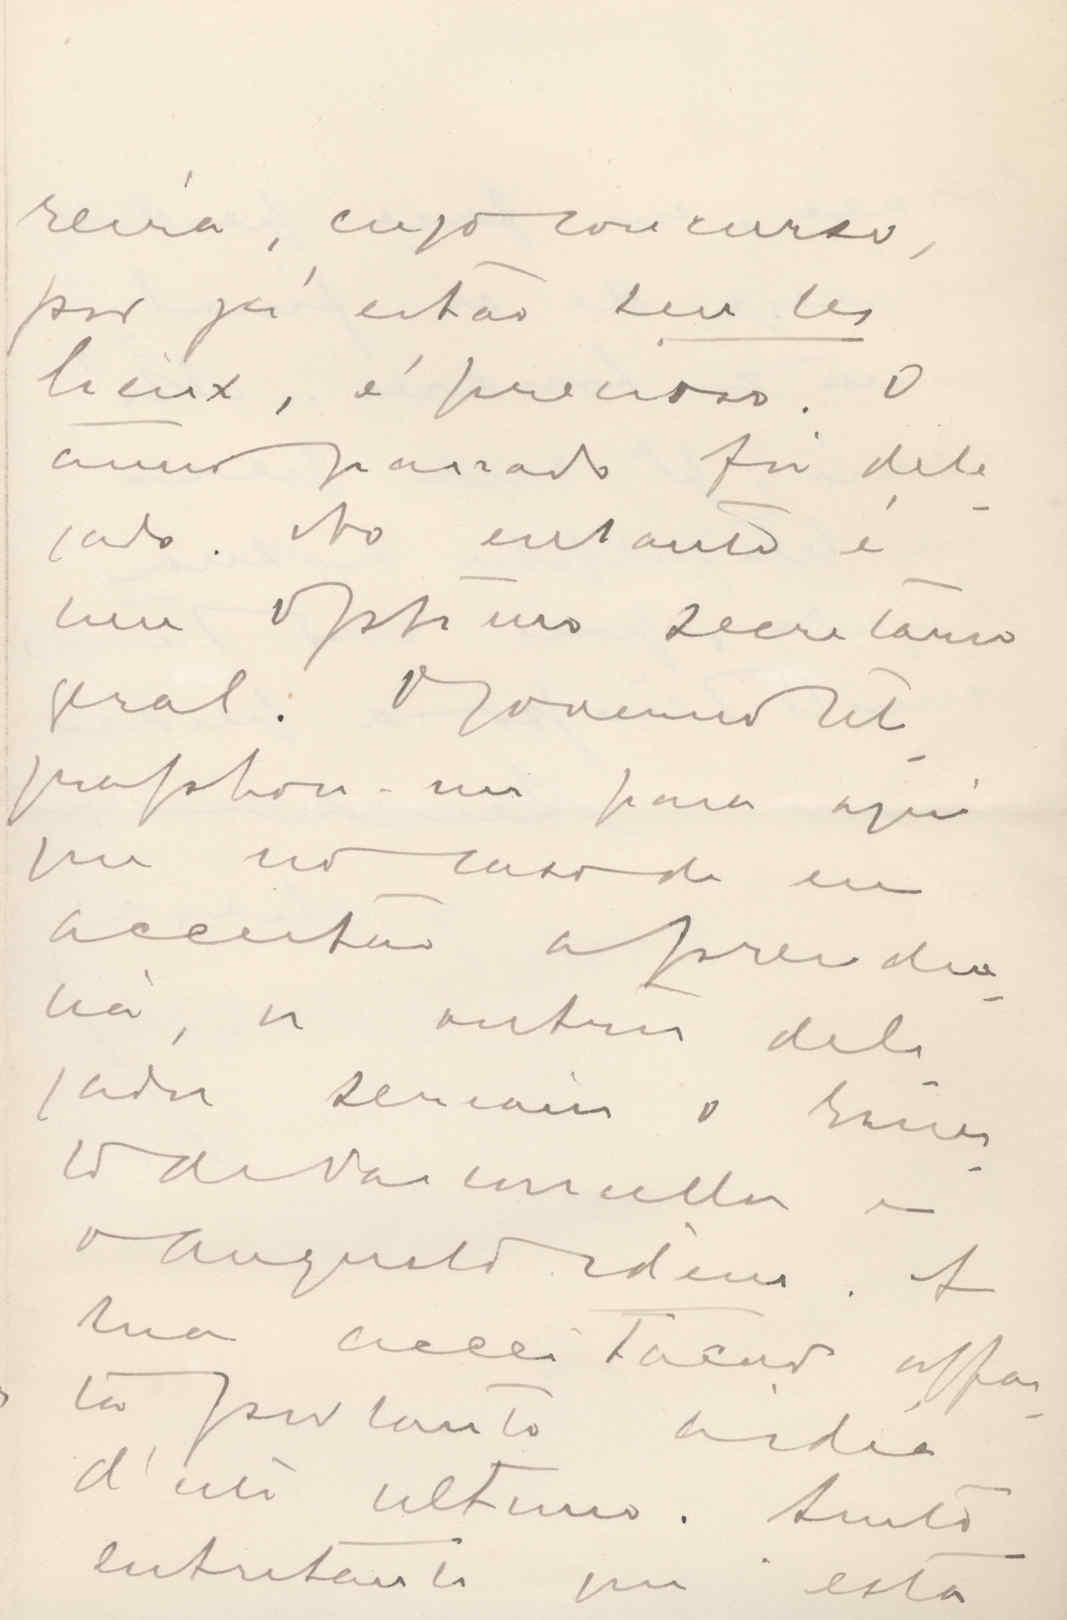 reira, cujo concurso,
por já então seu les
lieux, é precioso. O
anno passado foi dele-
gado. No entanto é
um optimo secretario
geral. O governo tele-
graphou-me para aqui
que no caso de eu
acceitar a presiden-
cia, os outros dele-
gados seriam o Ernes-
to de Vasconcellos e
o Augusto. A
sua acceitacao affas-
ta portanto a idéa
d'este ultimo. Sinto
entretanto que está